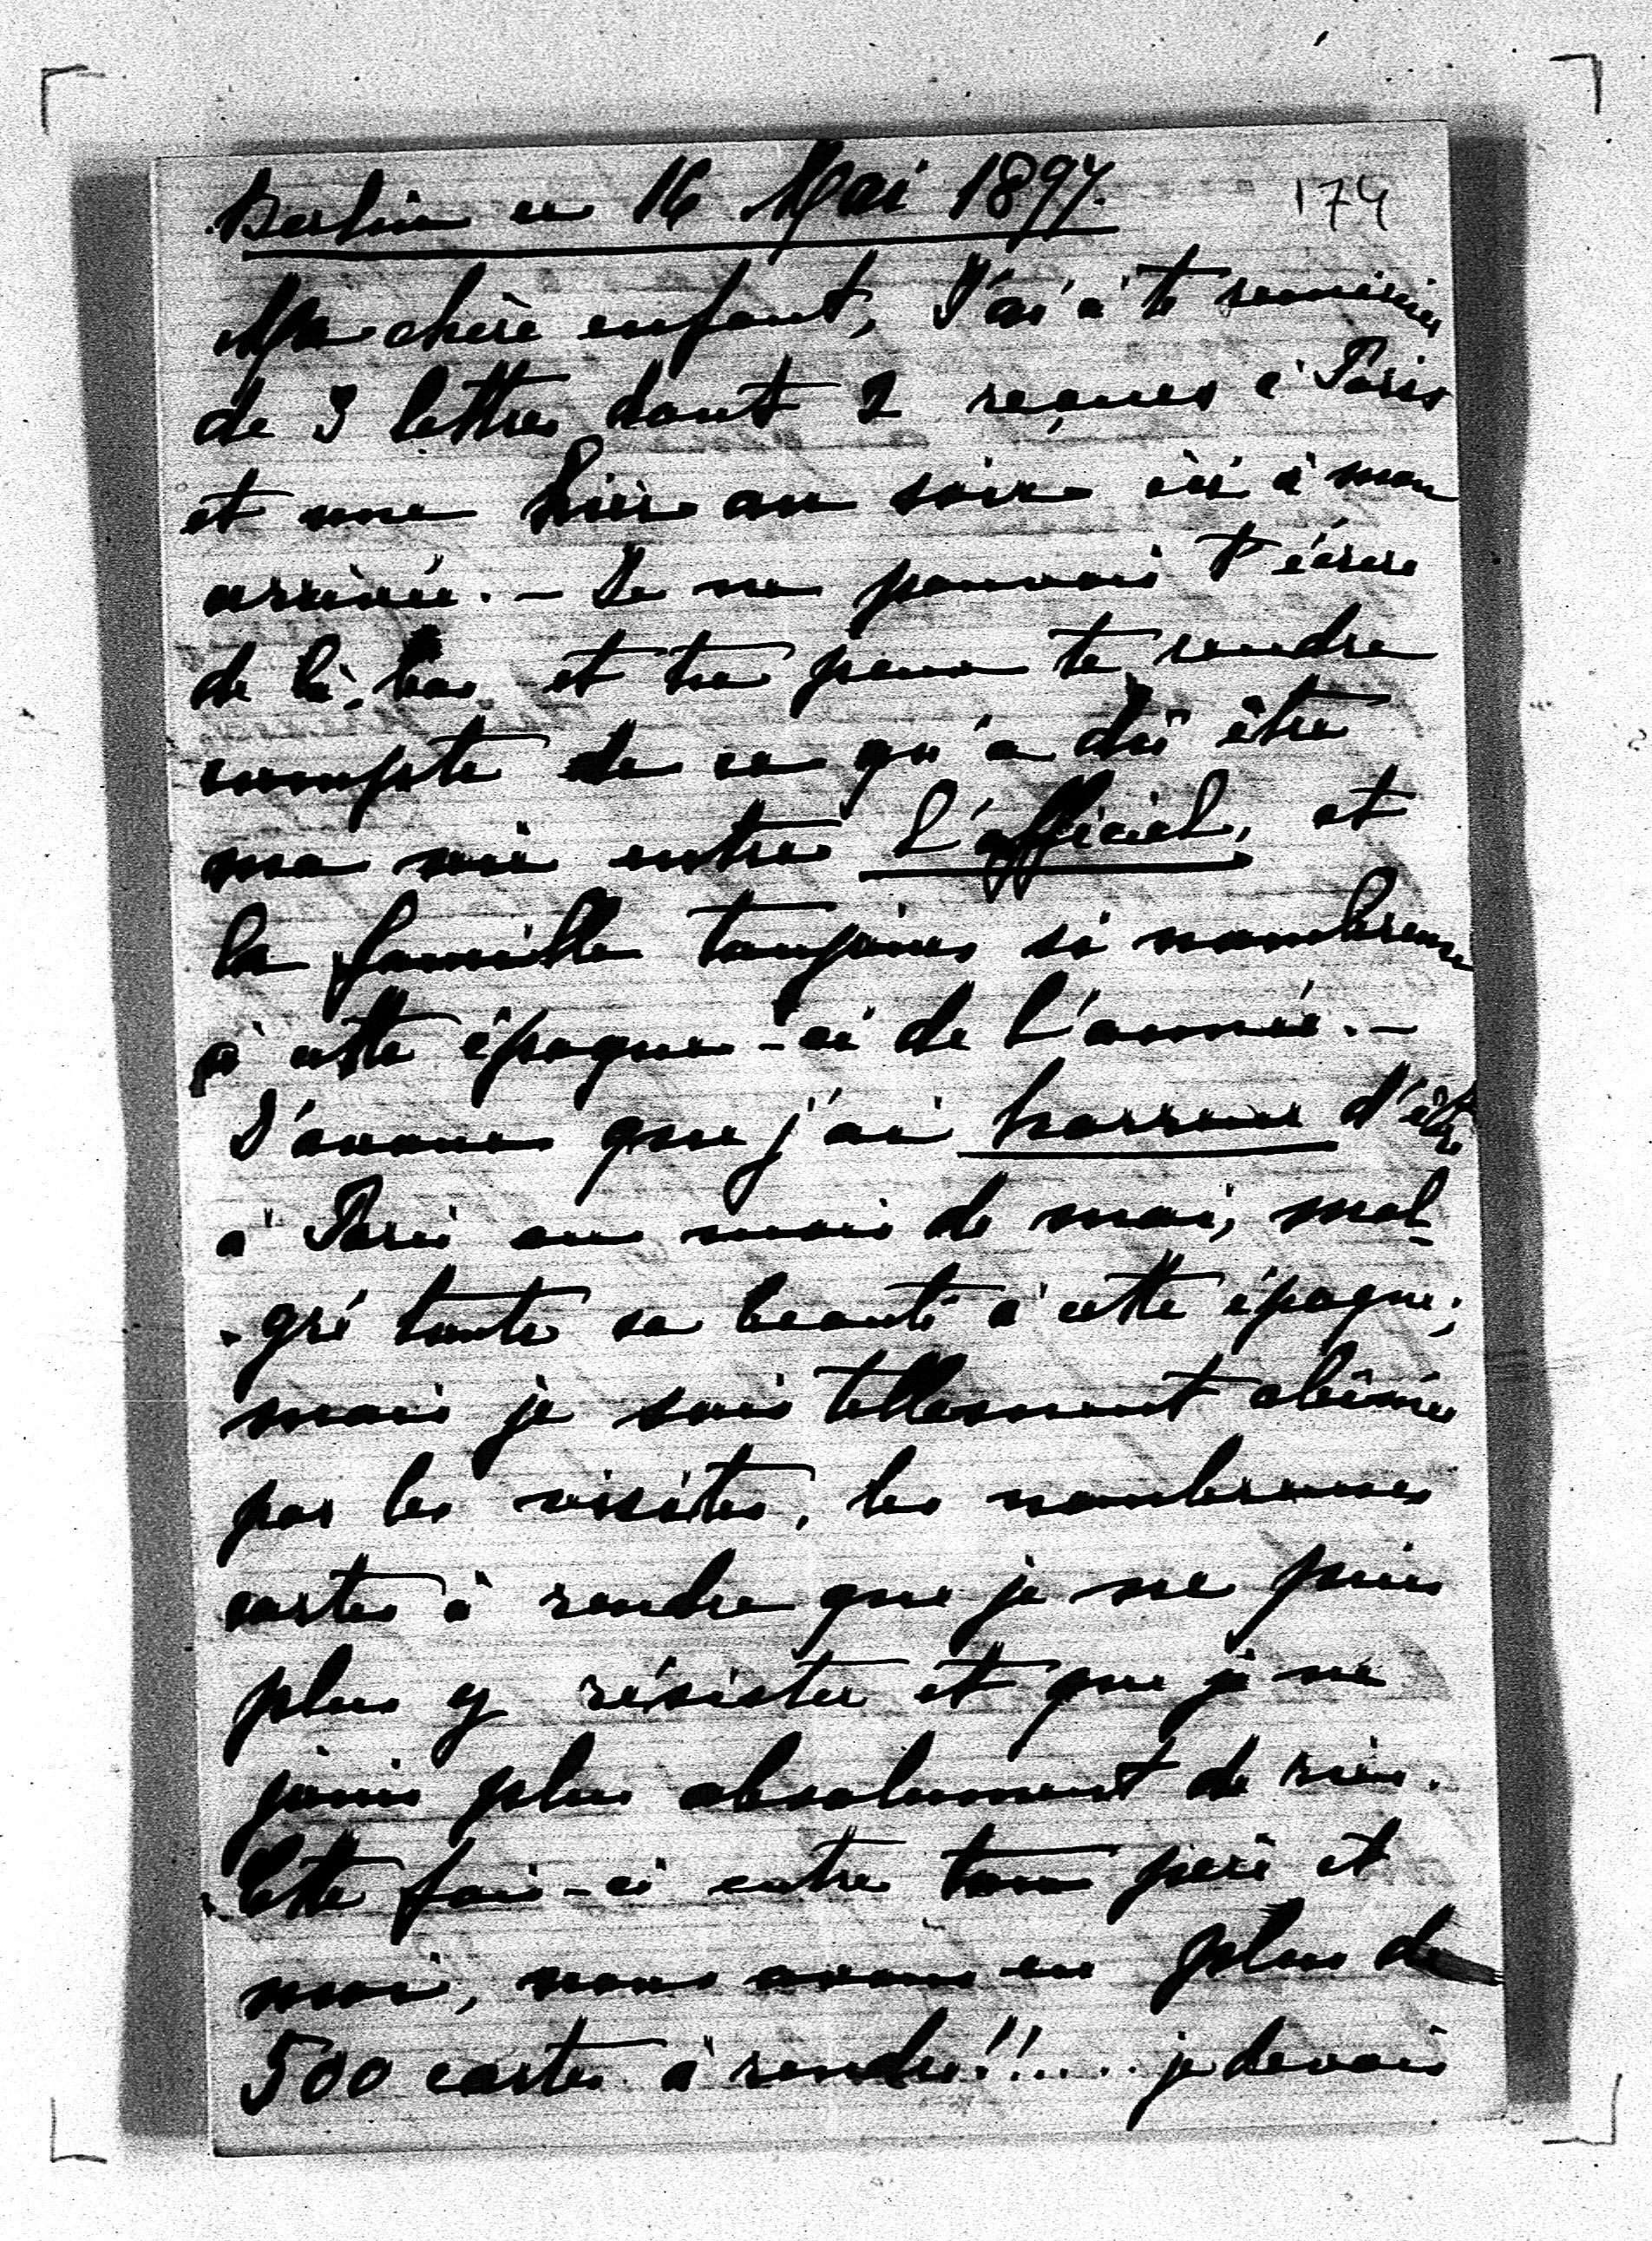 Berlin ce 16 Mai 1897.
174
Ma chère enfant, J'ai à te remercier
de 3 lettres dont 2 reçues à Paris
et une hier au soir ici à mon
arrivée. - Je ne pouvais t'écrire
de là-bas et tu peux te rendre
compte de ce qu'a dû être
ma vie entre l'officiel, et
la famille toujours si nombreuse
à cette époque-ci de l'année. -
J'avoue que j'ai horreur d'être
à Paris au mois de mai, mal-
-gré toute sa beauté à cette époque;
mais je suis tellement abîmée
par les visites, les nombreuses
cartes à rendre que je ne puis
plus y résister et que je ne
jouis plus absolument de rien.
Cette fois-ci entre ton père et
moi, nous avons eu plus de
500 cartes à rendre!!.... je devais